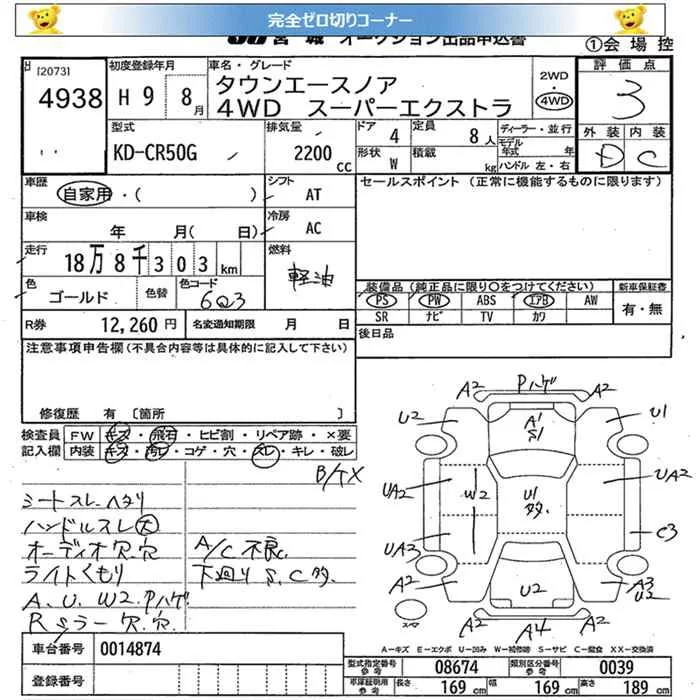 完全ゼロ切りコーナー
JU宮城 オークション出品申込書 ①会場控
[2073]
4938
初度登録年月
H9 8月
車名・グレード
タウンエースノア
4WD スーパーエクストラ
2WD
4WD
評価点
3
外装 内装
D C
型式
KD-CR50G
排気量
2200CC
ドア 4
定員 8人
形状 W
積載 kg
ディーラー・並行
モデル年式 年
ハンドル 左・右
車歴
自家用・( )
シフト
AT
セールスポイント (正常に機能するものに限ります)
車検
年 月( 日)
冷房
AC
走行
18万8千303km
燃料
軽油
色
ゴールド
色替
色コード
6Q3
装備品(純正品に限り○をつけてください)
PS PW ABS エアB AW
SR ナビ TV カワ
新車保証書
有・無
R券 12,260円
名変通知期限 月 日
後日品
注意事項申告欄(不具合内容等は具体的に記入して下さい)
修復歴 有 〔箇所 〕
検査員記入欄
FW キズ・飛石・ヒビ割・リペア跡・×要
内装 キズ・汚レ・コゲ・穴・スレ・キレ・破レ
シートスレ、ヘタリ
ハンドルスレ大
オーディオ欠.穴
ライトくもり
A、U、W2、Pハゲ
Rミラー欠.穴
A/C不良
下廻りS、C多
A2 Pハゲ A2
U2 A1 S1 U1
UA2 W2 U1多 UA2
UA3 C3
A2 U2 A3 U2
A2 A4 A2
スペア
A-キズ E-エクボ U-凹み W-補修跡 S-サビ C-腐食 XX-交換済
車台番号 0014874
登録番号
型式指定番号 参考 08674
類別区分番号 参考 0039
車庫証明用 参考
長さ 169cm 幅 169cm 高さ 189cm